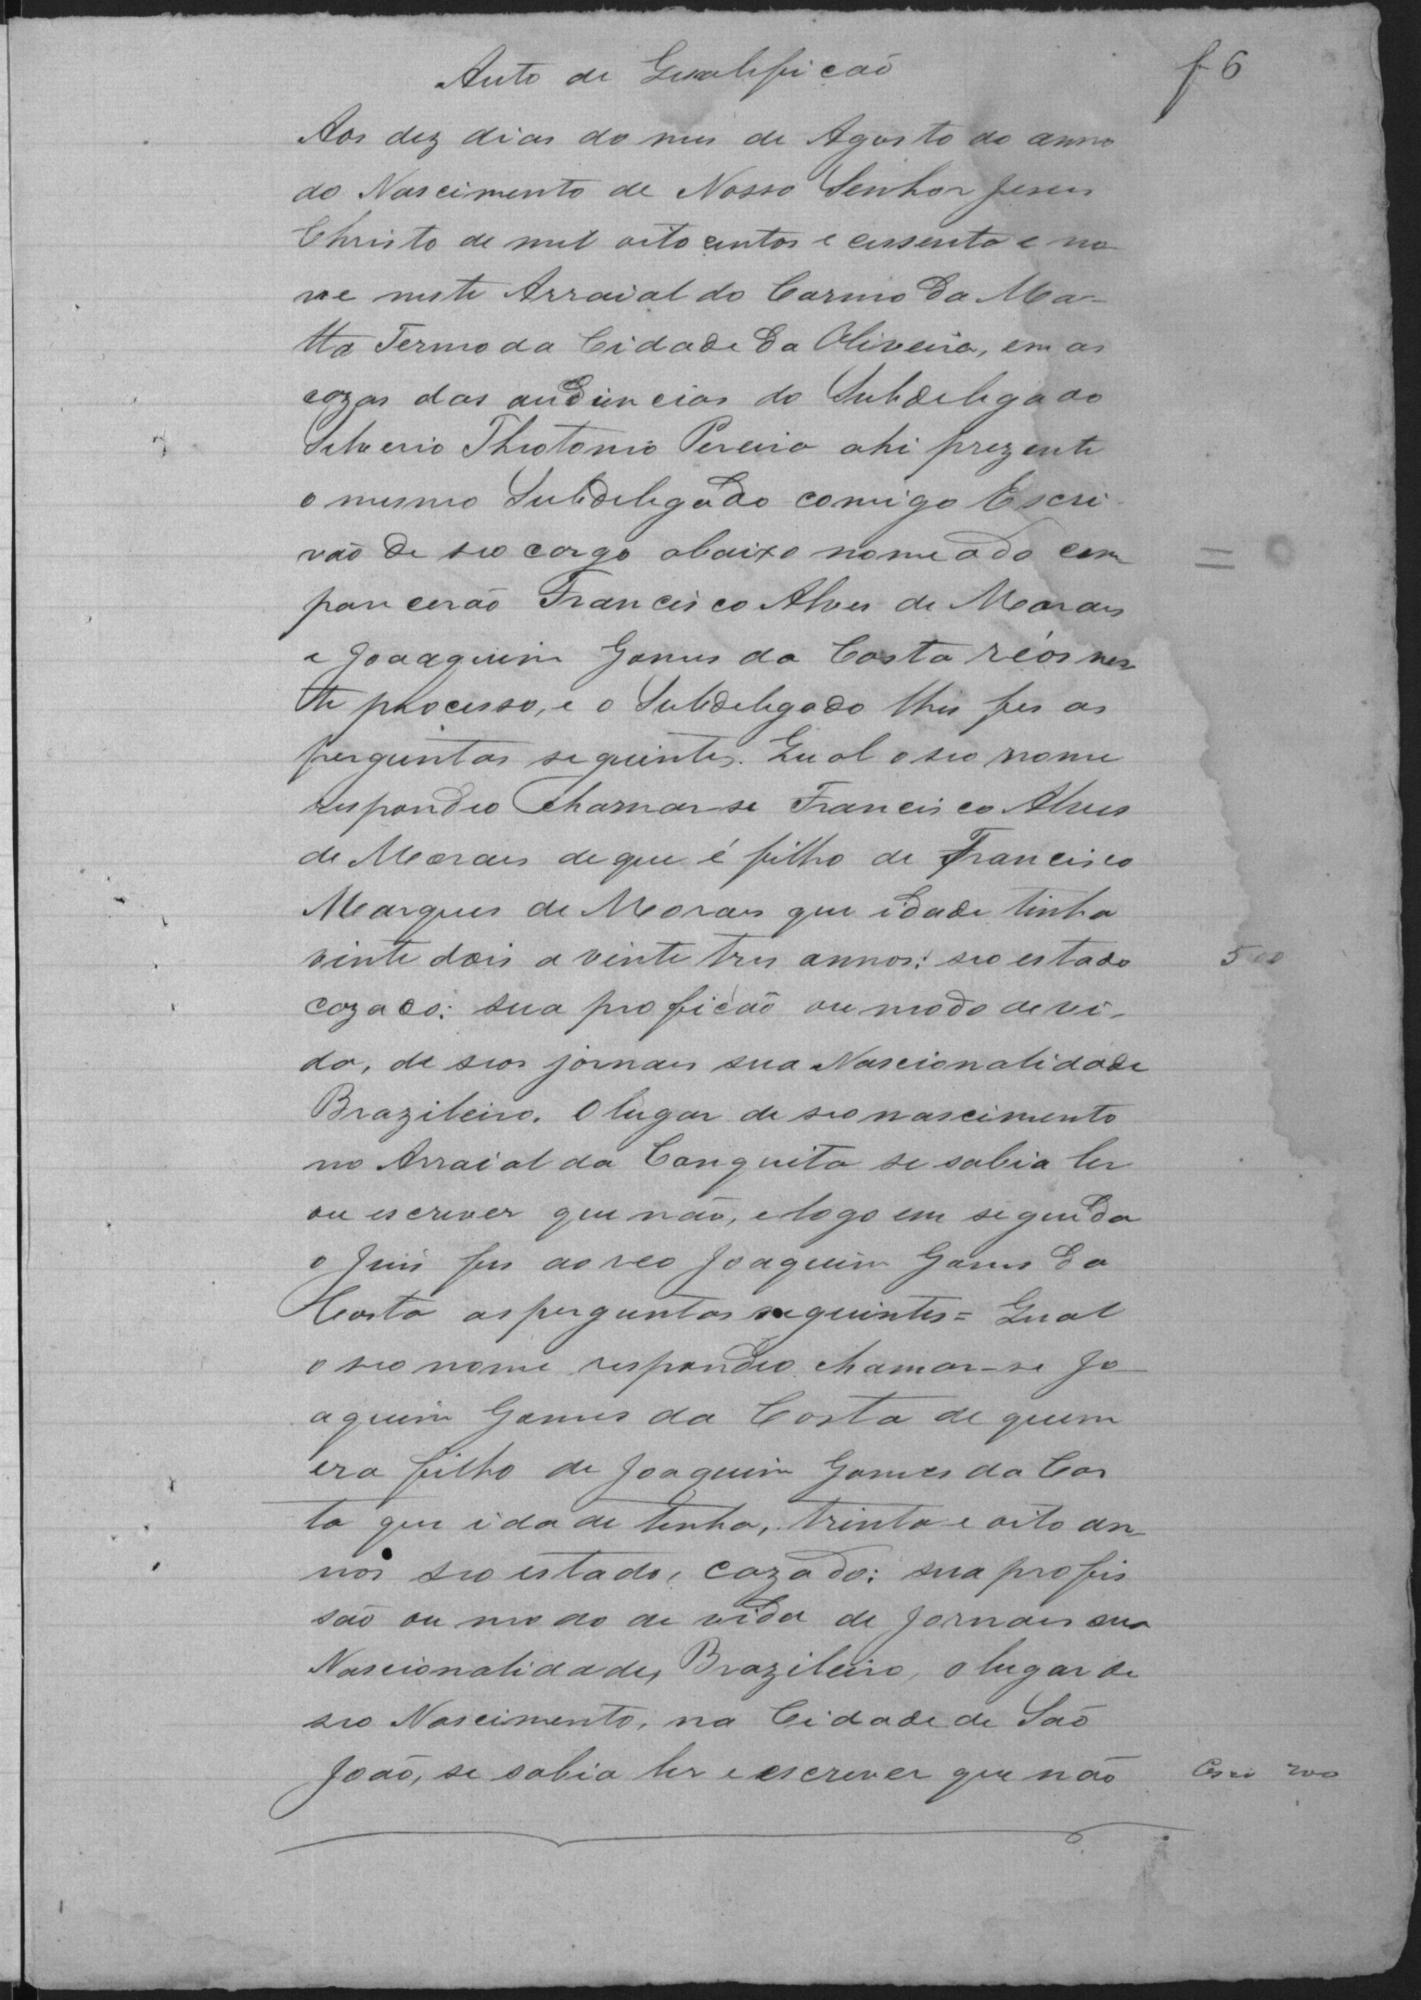 Auto de Qualificaõ
f 6
Aos dez dias do mes de Agosto do anno
do Nascimento de Nosso Senhor Jesus
Christo de mil oito centos e cessenta e no
ve neste Arraial do Carmo da Ma-
tta Termo da Cidade da Oliveira, em as
cazas das audiencias do Subdelegado
Silverio Thiotonio Pereira ahi prezente
o mesmo Subdelegado comigo Escri-
vão de seo cargo abaixo nomeado com
parecerão Francisco Alves de Morais
e Joaaquim Gomes da Costa réos nes
te processo, e o Subdelegado lhes fes as
perguntas seguintes. Qual o seo nome
respondeo chamar-se Francisco Alves
de Morais de que é filho de Francisco
Marques de Morais que idade tinha
vinte dois a vinte tres annos: seo estado
cazado: sua proficão ou modo de vi-
da, de seos jornais sua Nascionalidade
Brazileiro. O lugar de seo nascimento
no Arraial da Conquita se sabia ler
ou escrever que não, e logo em seguida
o Juis fes ao reo Joaquim Gomes da
Costa as perguntas seguintes = Qual
o seo nome respondeo chamar-se Jo
aquim Gomes da Costa de quem
era filho de Joaquim Gomes da Cos
ta que idade tinha, trinta e oito an-
nos seo estado, cazado: sua profis
são ou modo de vida de jornais sua
Nascionalidade, Brazileiro, o lugar de
seo Nascimento, na Cidade de São
João, se sabia ler e escrever que não